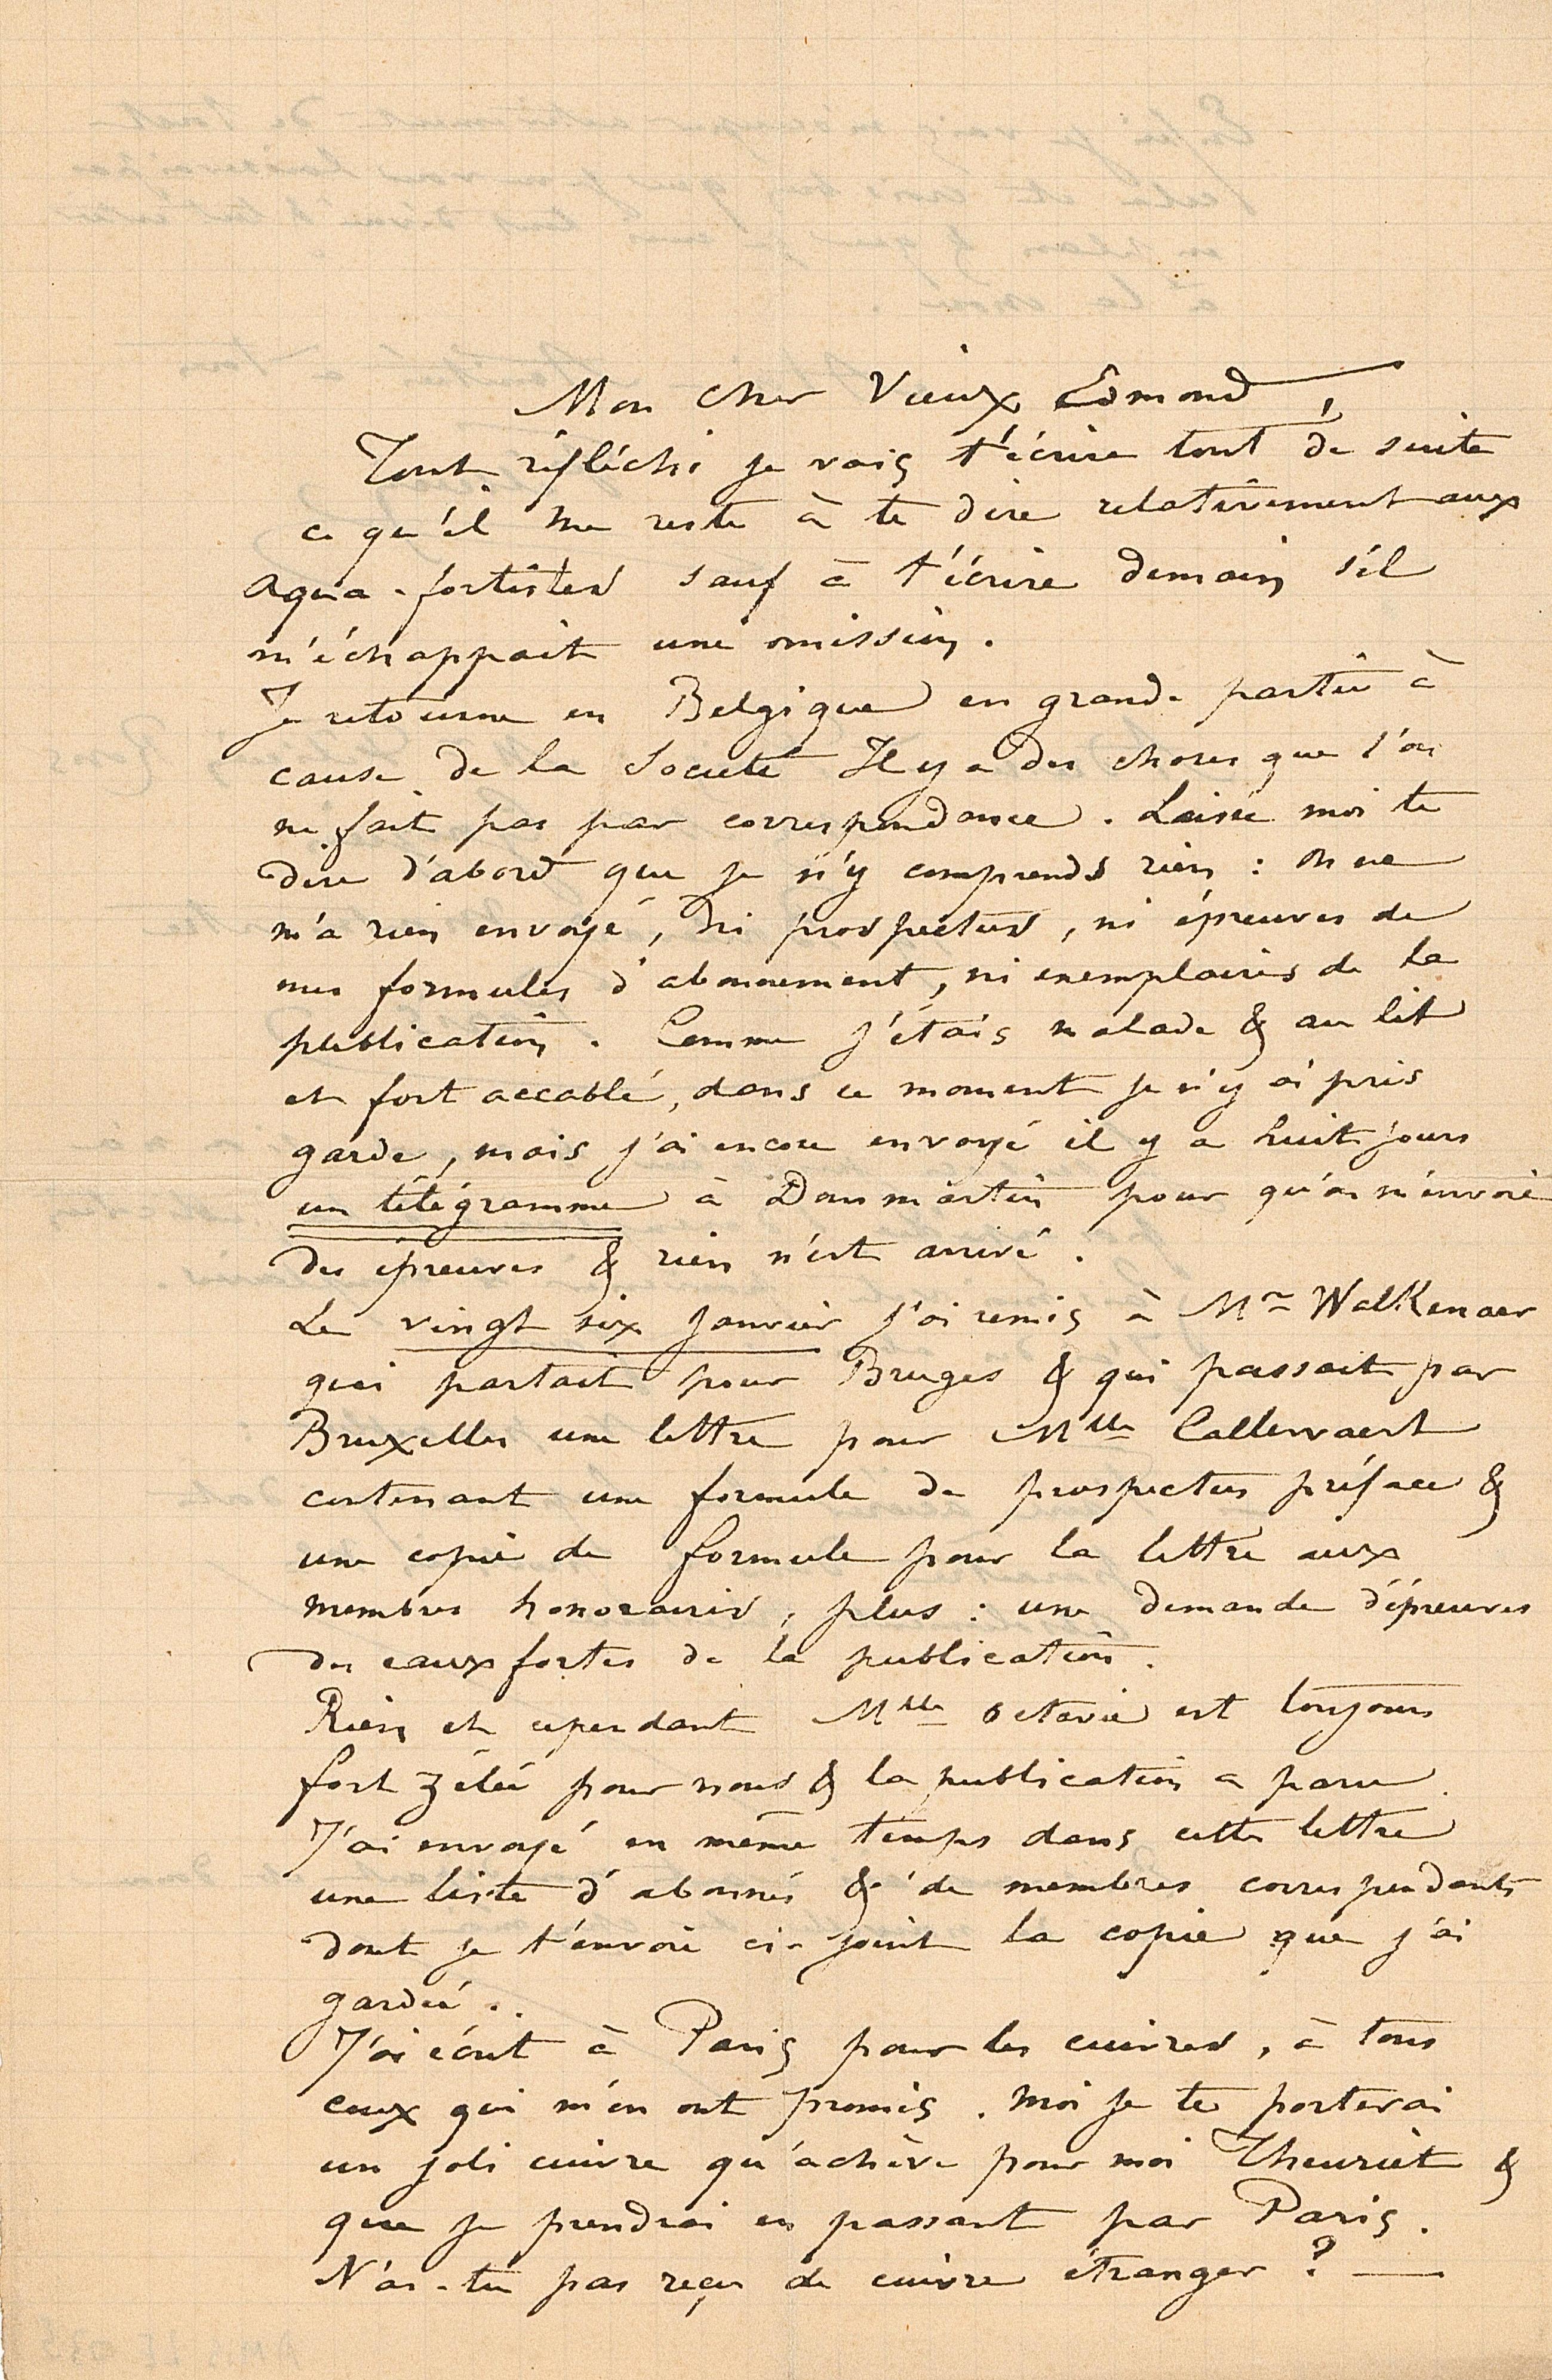 Mon cher Vieux Edmond,
Tout réfléchi je vais t'écrire tout de suite
ce qu'il me reste à te dire relativement aux
aqua-fortistes sauf à t'écrire demain s'il
m'échappait une omission.
Je retourne en Belgique en grande partie à
cause de la Société Il y a des choses que l'on
ne fait pas par correspondance. Laisse moi te
dire d'abord que je n'y comprends rien : On ne
m'a rien envoyé, ni prospectus, ni épreuves de
mes formules d'abonnement, ni exemplaires de la
publication. Comme j'étais malade & au lit
et fort accablé, dans ce moment je n'y ai pris
garde, mais j'ai encore envoyé il y a huit jours
un télégramme à Danmartin pour qu'on m'envoie
des épreuves & rien n'est arrivé.
Le vingt six Janvier j'ai remis à Mr Walkenaer
qui partait pour Bruges & qui passait par
Bruxelles une lettre pour Mlle Callewaert
contenant une formule de prospectus préface &
une copie de formule pour la lettre aux
membres honoraires, plus : une demande d'épreuves
des eaux fortes de la publication.
Rien et cependant Mlle Octavie est toujours
fort zélée pour nous & la publication a paru.
J'ai envoyé en même temps dans cette lettre
une liste d'abonnés & de membres correspondants
dont je t'envoie ci-joint la copie que j'ai
gardée..
J'ai écrit à Paris pour les cuivres, à tous
ceux qui m'en ont promis. Moi je te porterai
un joli cuivre qu'achève pour moi Theuriet &
que je prendrai en passant par Paris.
N'as-tu pas reçu de cuivre étranger ? —